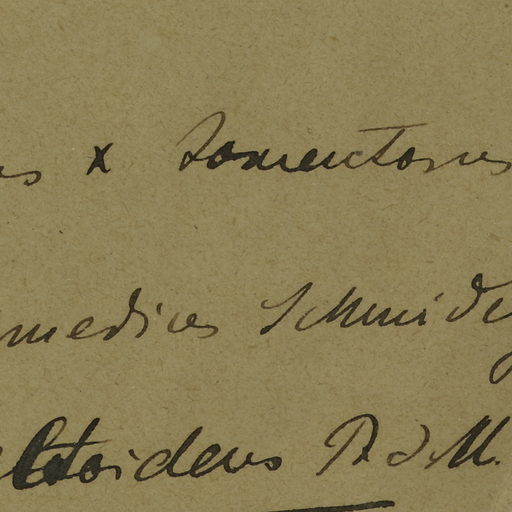 us x tomentosus
medius Schmidely
eltoideus R. d. M.